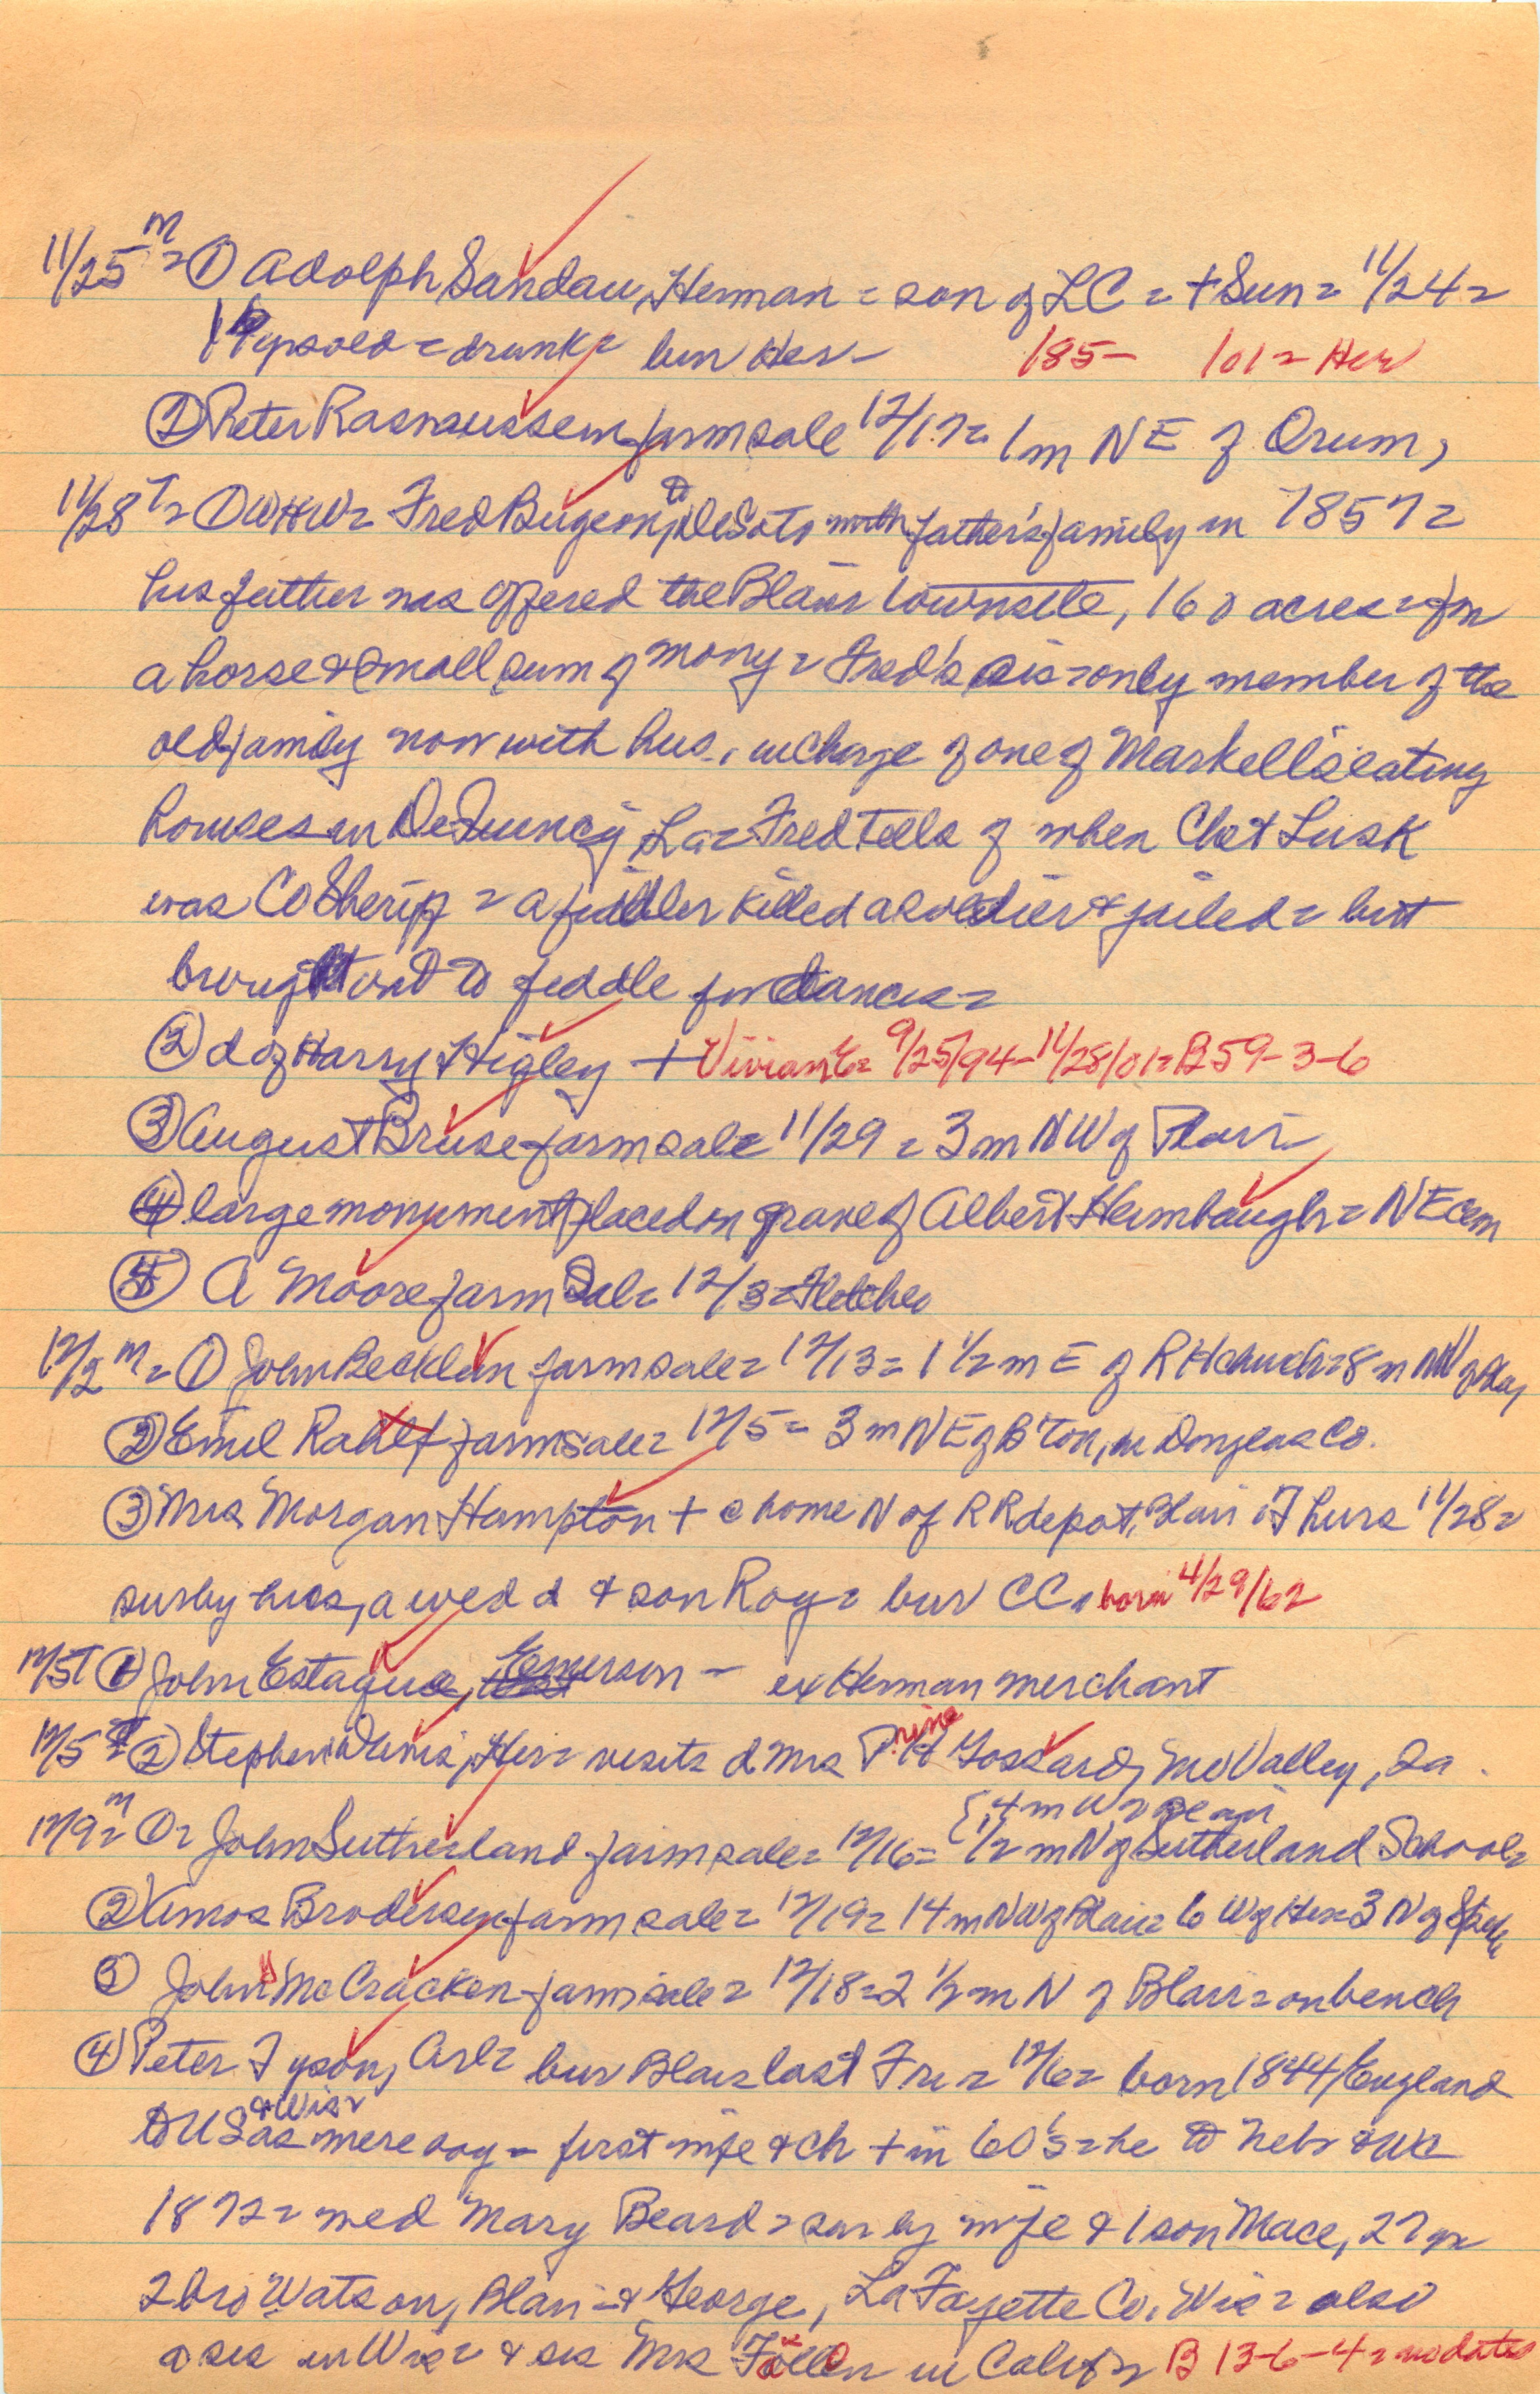 11/25 M = ① Adolph Sandau, Herman = son of LC = + Sun = 11/24 =
19 yrs old = drunk = bur Her - 185- 101 = Her
② Peter Rasmussen farm sale 12/17 = 1 m NE of Orum,
11/28 T = ① WHW = Fred Bugeon, to DeSoto with father's family in 1857 =
his father was offered the Blair townsite, 160 acres = for
a horse & small sum of mony = Fred's sis = only member of the
old family now with hus., in charge of one of Markell's eating
houses in DeQuincy, La = Fred tells of when Chet Lusk
was Co Sheriff = a fiddler killed a soldier & jailed = but
brought out to fiddle for dances =
② d of Harry Higley + Vivian E = 9/25/94 - 11/28/01 = B 59-3-6
③ August Bruse farm sale 11/29 = 3 m NW of Blair
④ large monument placed on grave of Albert Heimbaugh = NE cem
⑤ A Moore farm Sale 12/3 = Fletcher
12/2 M = ① John Becklen farm sale = 12/13 = 1 1/2 m E of RH church = 8 m NW of
② Emil Rahlf farm sale = 12/5 = 3 m NE of B'ton, in Douglas Co.
③ Mrs Morgan Hampton + @ home N of RR depot, Blair Thurs 11/28 =
sur by hus, a wed d & son Roy = bur CC. born 4/29/62
12/5 T ① John Estaque, Emerson - ex Herman merchant
12/5 T = ② Stephen W, Her = visits d Mrs Gossard, Mo Valley, Ia.
{4 m W =
12/9 M = ① = John Sutherland farm sale = 12/16 = 1/2 m N of Sutherland School =
② Amos Brodersen farm sale = 12/19 = 14 m NW of Blair = 6 W of Her = 3 N of
③ John McCracken farm sale = 12/18 = 2 1/2 m N of Blair = on bench
④ Peter Tyson, Arl = bur Blair last Fri = 12/6 = born 1844/England
& Wis =
to US as mere boy = first wife & ch + in 60's = he to Neb = & WC
1872 = med Mary Beard = sur by wife & 1 son Mace, 27 yr
2 bro Watson, Blair = & George, LaFayette Co. Wis = also
a sis in Wis = & sis Mrs in Calif = B 13-6-4 = no dates